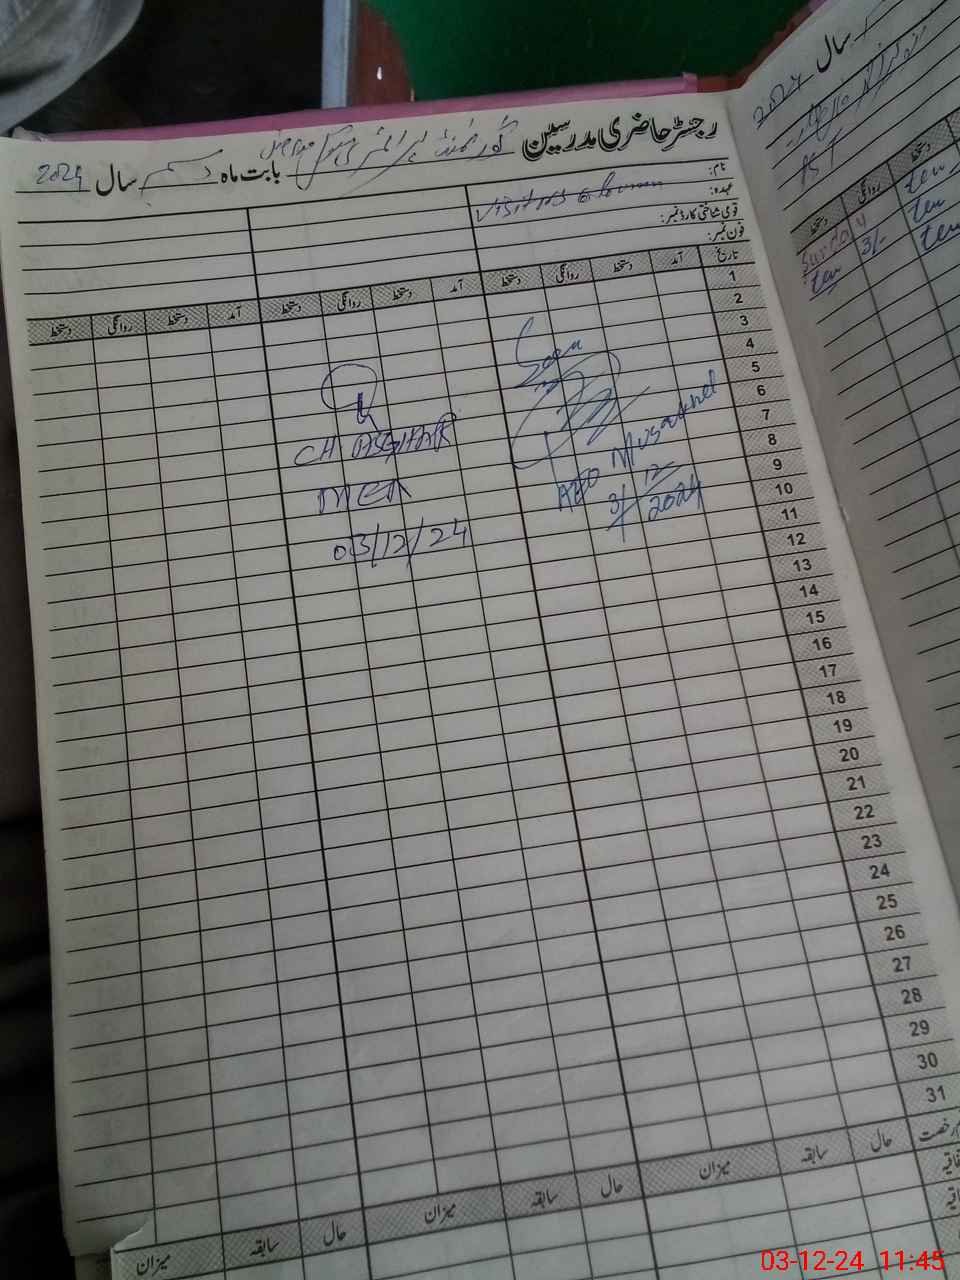 رجسٹر حاضری مدرسین گورنمنٹ پرائمری سکول
بابت ماہ دسمبر سال 2024
نام:
عہدہ: Visitors Column
قومی شناختی کارڈ نمبر:
فون نمبر:
تاریخ آمد دستخط روانگی دستخط آمد دستخط روانگی دستخط آمد دستخط روانگی دستخط
1
2
3
4
5
6
7
8
9
10
11
12
13
14
15
16
17
18
19
20
21
22
23
24
25
26
27
28
29
30
31
Seen
ADO Musakhel
3/12/2024
CH ASGHAR
MEA
03/12/24
رخصت حال سابقہ میزان حال سابقہ میزان حال سابقہ میزان
سال 2024
PST
دستخط روانگی دستخط
Sunday
ten 3/- ten
ten
ten
03-12-24 11:45